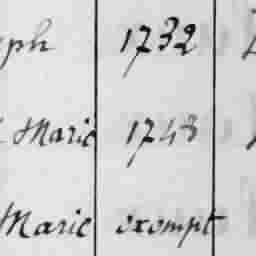 ph 1732
Marie 1743
Marie exempt